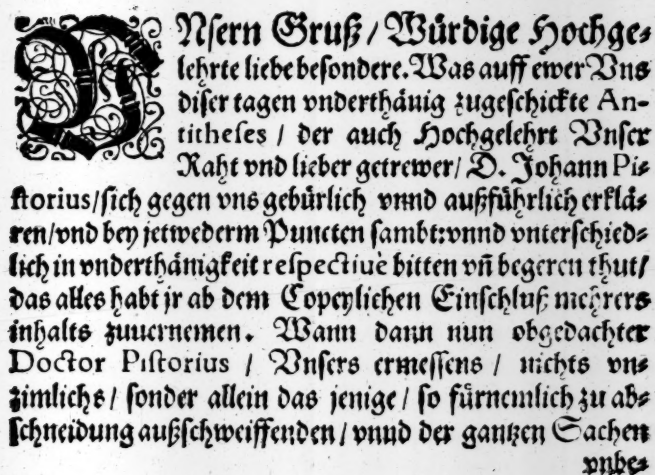 VNsern Gruß / Würdige Hochge⸗
lehrte liebe besondere. Was auff ewer Vns
diser tagen vnderthänig zugeschickte An-
titheses / der auch Hochgelehrt Vnser
Raht vnd lieber getrewer / D. Johann Pi⸗
storius / sich gegen vns gebürlich vnnd außführlich erklä⸗
ren / vnd bey jetwederm Puncten sambt: vnnd vnterschied⸗
lich in vnderthänigkeit respectiuè bitten vñ begeren thut /
das alles habt jr ab dem Copeylichen Einschluß mehrers
inhalts zuuernemen. Wann dann nun obgedachter
Doctor Pistorius / Vnsers ermessens / nichts vn⸗
zimlichs / sonder allein das jenige / so fürnemlich zu ab⸗
schneidung außschweiffenden / vnnd der gantzen Sachen
vnbe⸗